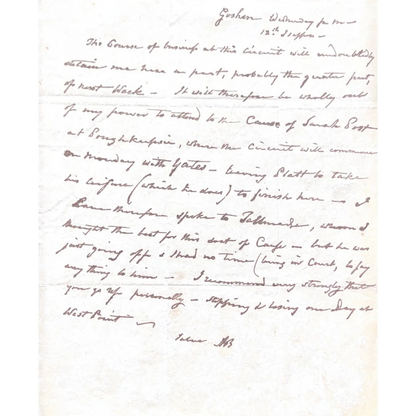 Goshen Wednesday p.m.
12th Septr
The Course of business at this Circuit will undoubtedly
detain me here a part, probably the greater part,
of next Week - It will therefore be wholly out
of my power to attend to the Cause of Sarah Post
at Poughkeepsie, where the Circuit will commence
on Monday with Yates - leaving Platt to take
his leisure (which he does) to finish here - I
have therefore spoke to Tallmadge, whom I
thought the best for this sort of Case - but he was
just going off & I had no time (being in Court) to say
any thing to him - I recommend very strongly that
you go up personally - stopping & losing one day at
West Point
AB